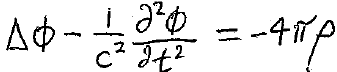 Δϕ − 1/c² ∂²ϕ/∂t² = −4πρ